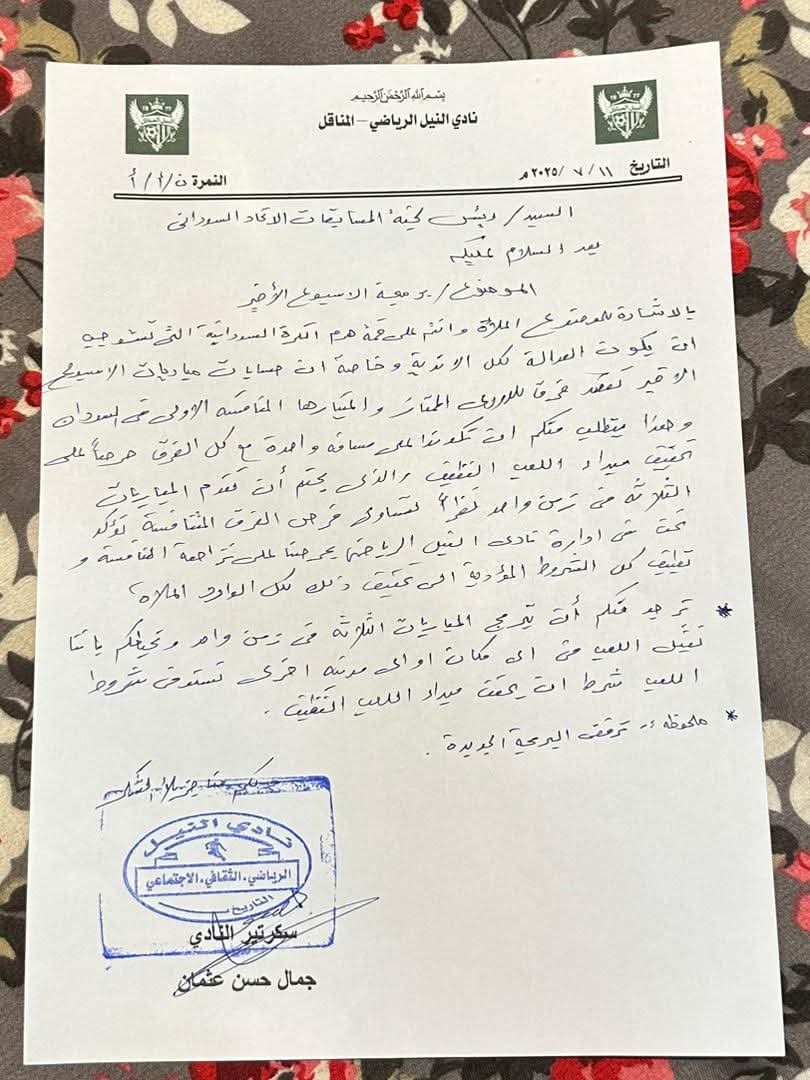 بسم الله الرحمن الرحيم
نادي النيل الرياضي – المناقل
التاريخ ١١ / ٧ / ٢٠٢٥ م
النمرة ن / أ / أ
السيد / رئيس لجنة المسابقات الاتحاد السوداني
بعد السلام عليكم
الموضوع / برمجة الاسبوع الأخير
بالاشارة للموضوع اعلاه وانتم على قمة هرم الكرة السودانية التى تستوجب
ان يكون العدالة لكل الاندية وخاصة ان حسابات مباريات الاسبوع
الاخير تصعد فرق للدورى الممتاز واعتبارها المنافسه الاولى فى السودان
وهذا يتطلب منكم ان تكونوا على مسافه واحدة مع كل الفرق حرصاً على
تحقيق مبداء اللعب النظيف والذى يحتم أن تقدم المباريات
الثلاثه فى زمن واحد نظراً لتساوى فرص الفرق المتنافسة نؤكد
نحن فى ادارة نادى النيل الرياضى حرصنا على نزاهة المنافسه و
تطبيق كل الشروط المؤدية الى تحقيق ذلك لكل الوارد اعلاه
* نرجو منكم أن تبرمج المباريات الثلاثه فى زمن واحد ونحيطكم باننا
نقبل اللعب فى اى مكان او اى مدينه اخرى تستوفى شروط
اللعب شرط ان يحقق مبداء اللعب النظيف .
* ملحوظه :- ترفق البرمجة الجديدة .
ولكم منا جزيل الشكر
نادي النيل
الرياضي . الثقافي . الاجتماعي
التاريخ
سكرتير النادي
جمال حسن عثمان